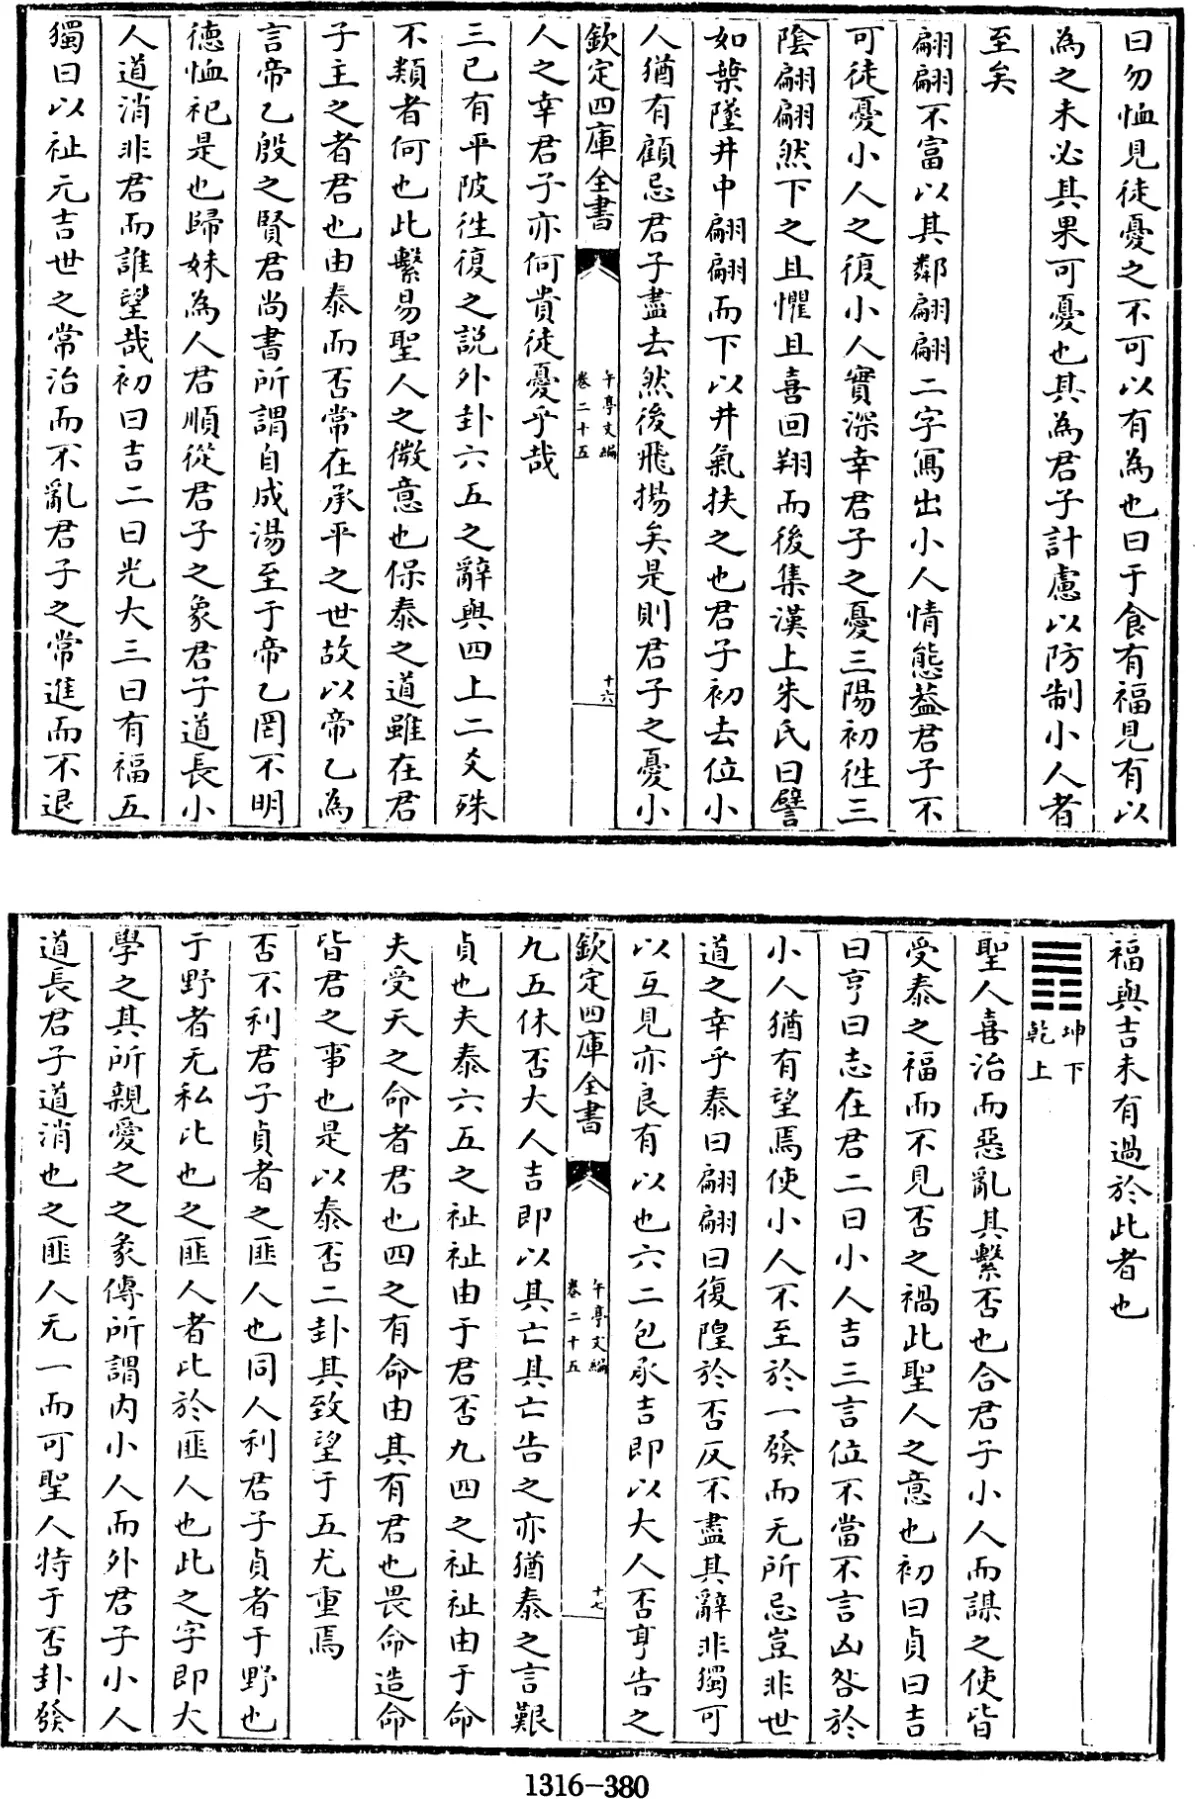 曰勿恤見徒憂之不可以有為也曰于食有福見有以
為之未必其果可憂也其為君子計慮以防制小人者
至矣
翩翩不富以其鄰翩翩二字寫出小人情態葢君子不
可徒憂小人之復小人實深幸君子之憂三陽初徃三
陰翩翩然下之且懼且喜回翔而後集漢上朱氏曰譬
如葉墜井中翩翩而下以井氣扶之也君子初去位小
人猶有顧忌君子盡去然後飛揚矣是則君子之憂小
欽定四庫全書
午亭文編
卷二十五
十六
人之幸君子亦何貴徒憂乎哉
三已有平陂徃復之説外卦六五之辭與四上二爻殊
不類者何也此繫易聖人之微意也保泰之道雖在君
子主之者君也由泰而否常在承平之世故以帝乙為
言帝乙殷之賢君尚書所謂自成湯至于帝乙罔不明
德恤祀是也歸妹為人君順從君子之象君子道長小
人道消非君而誰望哉初曰吉二曰光大三曰有福五
獨曰以祉元吉世之常治而不亂君子之常進而不退
福與吉未有過於此者也
坤下
乾上
聖人喜治而惡亂其繫否也合君子小人而謀之使皆
受泰之福而不見否之禍此聖人之意也初曰貞曰吉
曰亨曰志在君二曰小人吉三言位不當不言凶咎於
小人猶有望焉使小人不至於一發而无所忌豈非世
道之幸乎泰曰翩翩曰復隍於否反不盡其辭非獨可
以互見亦良有以也六二包承吉即以大人否亨告之
欽定四庫全書
午亭文編
卷二十五
十七
九五休否大人吉即以其亡其亡告之亦猶泰之言艱
貞也夫泰六五之祉祉由于君否九四之祉祉由于命
夫受天之命者君也四之有命由其有君也畏命造命
皆君之事也是以泰否二卦其致望于五尤重焉
否不利君子貞者之匪人也同人利君子貞者于野也
于野者无私比也之匪人者比於匪人也此之字即大
學之其所親愛之之象傳所謂内小人而外君子小人
道長君子道消也之匪人无一而可聖人特于否卦發
1316-380